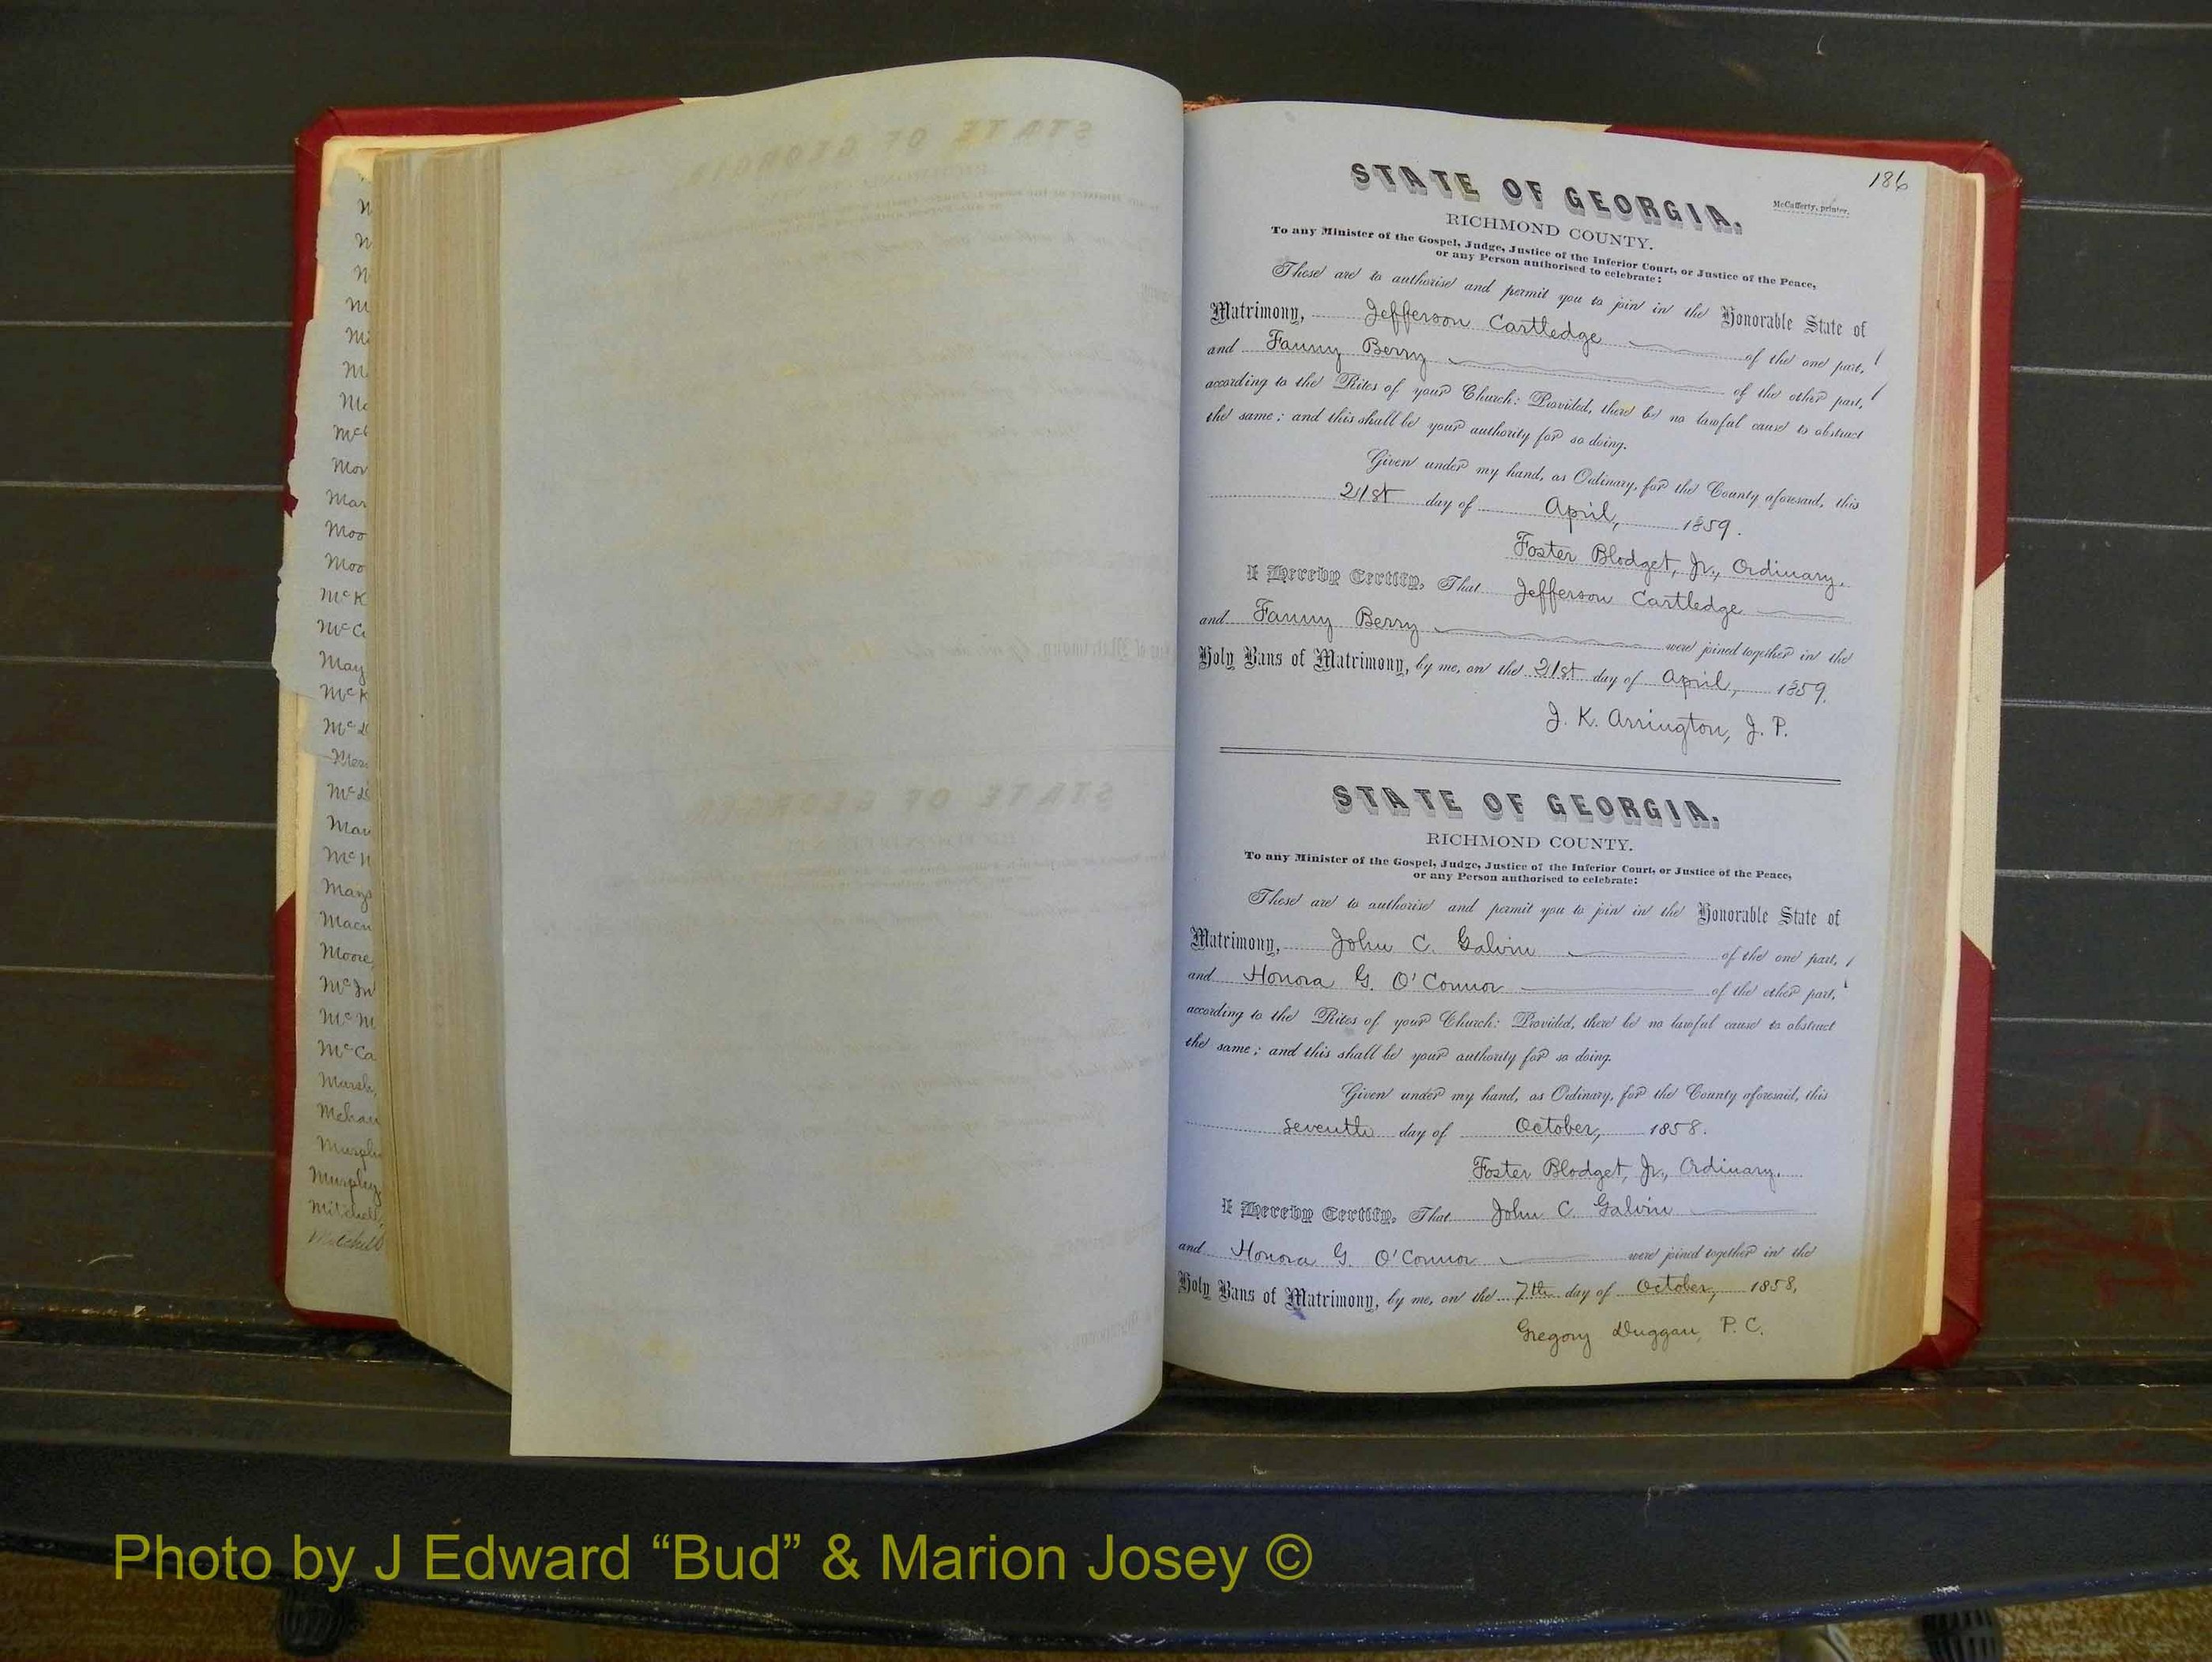 186
STATE OF GEORGIA.
McCafferty, printer.
RICHMOND COUNTY.
To any Minister of the Gospel, Judge, Justice of the Inferior Court, or Justice of the Peace,
or any Person authorised to celebrate:
These are to authorise and permit you to join in the Honorable State of
Matrimony, Jefferson Cartledge of the one part,
and Fanny Berry of the other part,
according to the Rites of your Church: Provided, there be no lawful cause to obstruct
the same; and this shall be your authority for so doing.
Given under my hand, as Ordinary, for the County aforesaid, this
21st day of April, 1859.
Foster Blodget, Jr., Ordinary.
I Hereby Certify, That Jefferson Cartledge
and Fanny Berry were joined together in the
Holy Bans of Matrimony, by me, on the 21st day of April, 1859.
J. K. Arrington, J. P.
STATE OF GEORGIA.
RICHMOND COUNTY.
To any Minister of the Gospel, Judge, Justice of the Inferior Court, or Justice of the Peace,
or any Person authorised to celebrate:
These are to authorise and permit you to join in the Honorable State of
Matrimony, John C. Galvin of the one part,
and Honora G. O'Connor of the other part,
according to the Rites of your Church: Provided, there be no lawful cause to obstruct
the same; and this shall be your authority for so doing.
Given under my hand, as Ordinary, for the County aforesaid, this
seventh day of October, 1858.
Foster Blodget, Jr., Ordinary.
I Hereby Certify, That John C. Galvin
and Honora G. O'Connor were joined together in the
Holy Bans of Matrimony, by me, on the 7th day of October, 1858,
Gregory Duggan, P. C.
May
Moore,
Murphy
Mitchell,
Photo by J Edward “Bud” & Marion Josey ©